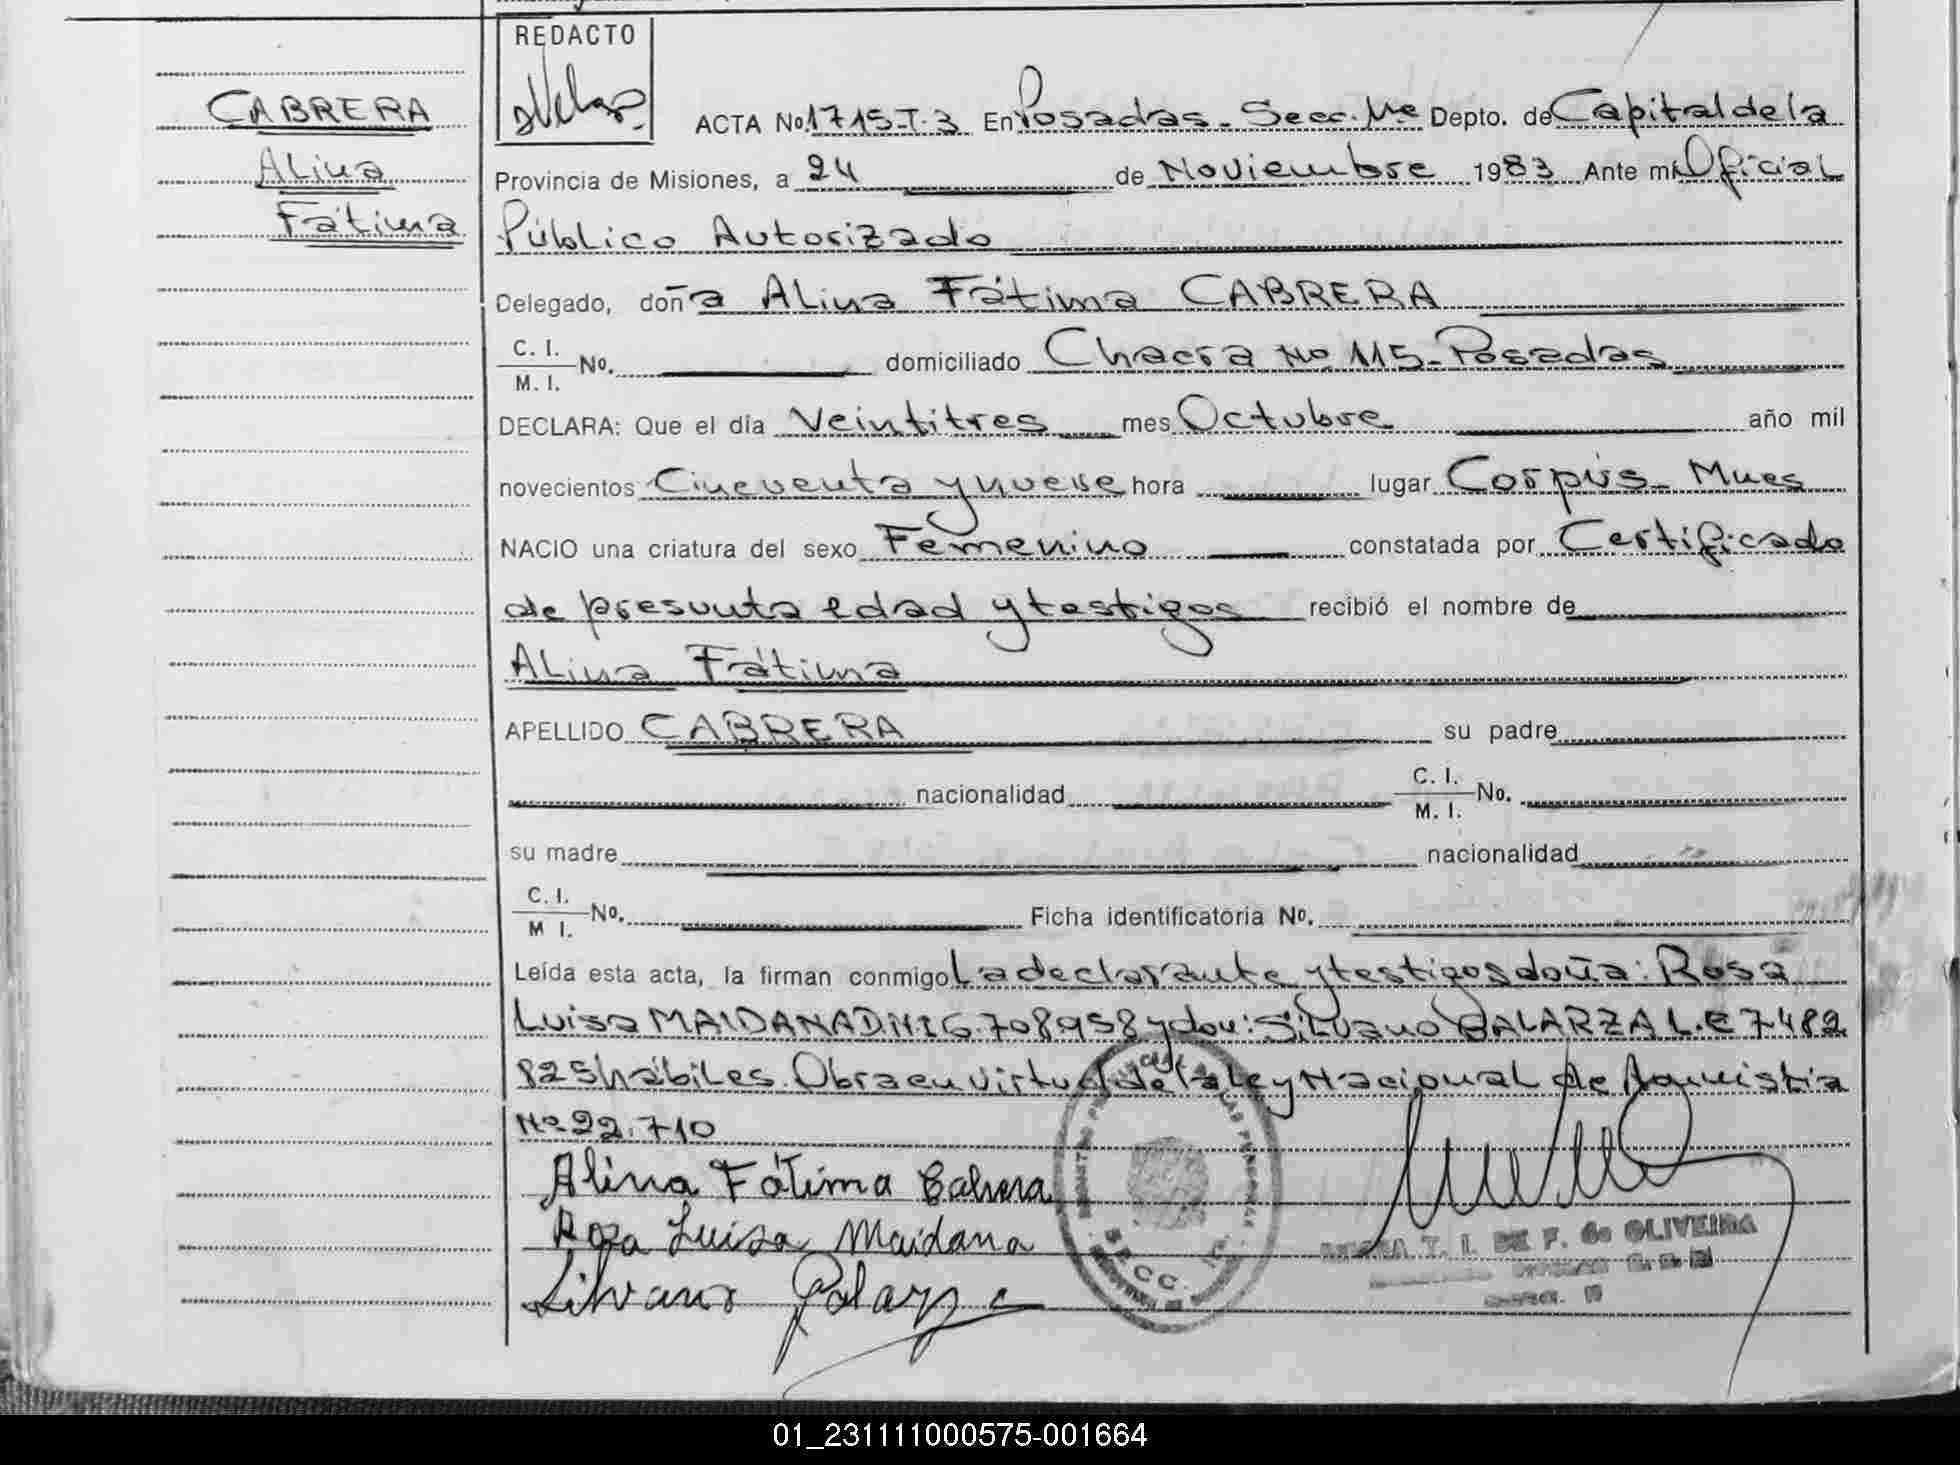 REDACTO
CABRERA
Alina
Fátima
ACTA No. 1715-T.3 En Posadas - Secc. 1ra Depto. de Capital de la
Provincia de Misiones, a 24 de Noviembre 1983 Ante mí Oficial
Público Autorizado
Delegado, doña Alina Fátima CABRERA
C. I.
M. I. No. domiciliado Chacra No 115 - Posadas
DECLARA: Que el día Veintitres mes Octubre año mil
novecientos Cincuenta y nueve hora lugar Corpús - Mnes
NACIO una criatura del sexo Femenino constatada por Certificado
de presunta edad y testigos recibió el nombre de
Alina Fátima
APELLIDO CABRERA su padre
nacionalidad C. I.
M. I. No.
su madre nacionalidad
C. I.
M I. No. Ficha identificatoria No.
Leída esta acta, la firman conmigo La declarante y testigos doña: Rosa
Luisa MAIDANA D.N.I 6.708958 y don: Silvano GALARZA L.E 7.482
825 hábiles. Obra en virtud de la ley Nacional de Amnistia
No 22.710
Alina Fátima Cabrera
Rosa Luisa Maidana
Silvano Galarza
SECC.
T. I. DE F. de OLIVEIRA
01_231111000575-001664